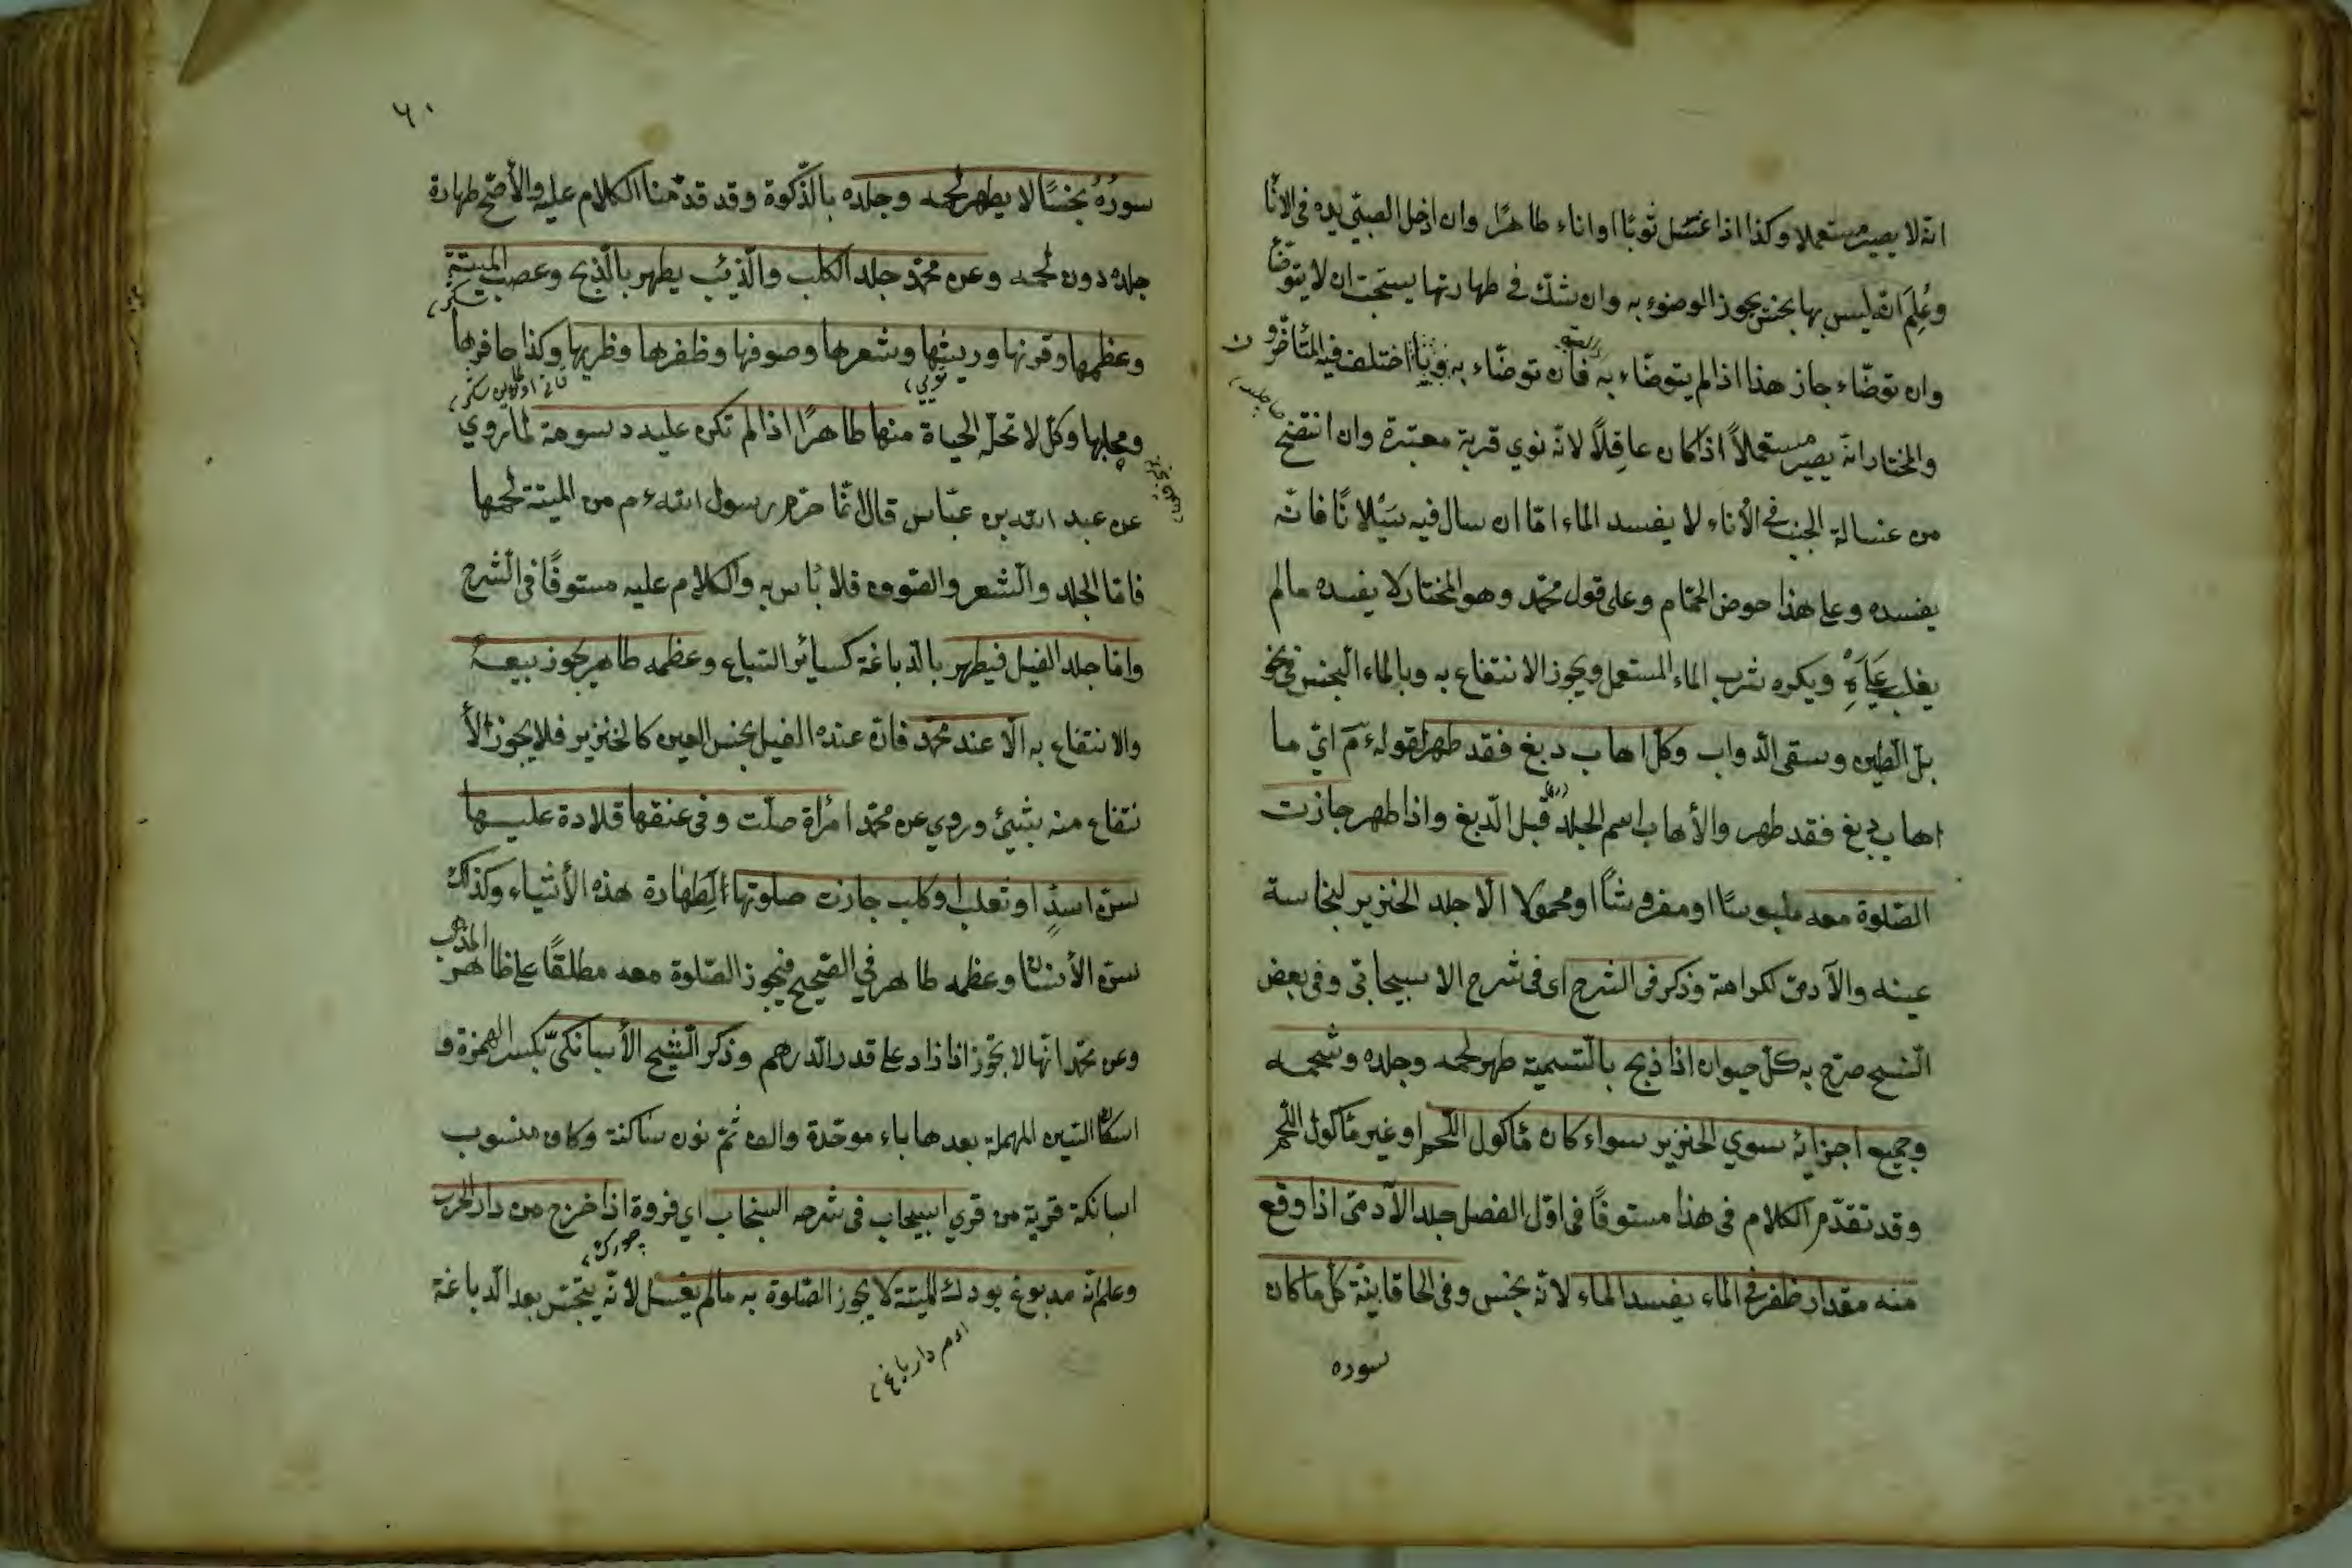 انه لا يصير مستعملا وكذا اذا غسل ثوبًا او اناء طاهرًا وان ادخل الصبيّ يده فى الانا
وعُلِمَ انه ليس بها نجس يجوز الوضوء به وان شك فى طهارتها يستحب ان لا يتوضّا
وان توضّاء جاز هذا اذا لم يتوضّاء به فان توضّاء به ناويا اختلف فيه المتأخرون
والمختار انه يصير مستعملاً اذا كان عاقِلاً لانه نوي قربة معتبرة وان انتضح
من غسالة الجنب فى الأناء لا يفسد الماء امّا ان سال فيه سَيْلانًا فانه
يفسده وعلى هذا حوض الحمّام وعلى قول محمّد وهو المختار لا يفسده مالم
يغلب عَلَيْهِ ويكره شرب الماء المستعمل ويجوز الانتفاع به وبالماء النجس فى نحو
بلّ الطين وسقى الدواب وكل اهاب دبغ فقد طهر لقوله ءم ايّ ما
اهاب دبغ فقد طهر والأهاب اسم الجلد قبل الدبغ واذا طهر جازت
الصّلوة معه ملبوسًا او مفروشًا او محمولا الّا جلد الخنزير لنجاسة
عينه والآدمىّ لكرامته وذكر فى الشرح اى فى شرح الاسبيجابى وفى بعض
النسخ صرّح به كلّ حيوان اذا ذبح بالتسمية طهر لحمه وجلده وشحمه
وجميع اجزائه سوي الخنزير سواء كان مأكول اللّحم او غير مأكول اللّحم
وقد تقدّم الكلام فى هذا مستوفًا فى اوّل الفصل جلد الآدمىّ اذا وقع
منه مقدار ظفر فى الماء يفسد الماء لانّه نجس وفى الخاقانية كل ما كان
سوره
٦٠
سورُهُ نجسًا لا يطهر لحمه وجلده بالذّكوة وقد قدّمنا الكلام عليه والأصحّ طهارة
جلده دون لحمه وعن محمّد جلد الكلب والذئب يطهر بالذّبح وعصب الميتة
وعظمها وقرنها وريشها وشعرها وصوفها وظفرها وظلفها وكذا حافرها
ومخلبها وكل لا تحلّه الحياة منها طاهرًا اذا لم تكن عليه دسومة لما روي
عن عبد الله بن عبّاس قال انّما حرّم رسول الله ءم من الميتة لحمها
فامّا الجلد والشعر والصّوف فلا بأس به والكلام عليه مستوفًا فى الشرح
وامّا جلد الفيل فيطهر بالدّباغة كسائر السّباع وعظمه طاهر يجوز بيعه
والانتفاع به الّا عند محمّد فانّ عنده الفيل نجس العين كالخنزير فلا يجوز الأ
نتفاع منه بشيئ وروي عن محمّد امرأة صلّت وفى عنقها قلادة عليها
سنّ اسدٍ او ثعلب او كلب جازت صلوتها لِطهارة هذه الأشياء وكذلك
سنّ الأنسان وعظمه طاهر فى الصّحيح فيجوز الصّلوة معه مطلقًا على ظاهر المذهب
وعن محمّد انّها لا تجوز اذا زاد على قدر الدّرهم وذكر الشيخ الأسبانكىّ بكسر الهمزة و
اسكان السّين المهملة بعدها باء موحّدة والف ثمّ نون ساكنة وكاف منسوب
اسبانكة قرية من قري اسبيجاب فى شرحه السنجاب اي فروة اذا خرج من دار الحرب
وعلم انّه مدبوغ بودك الميتة لا يجوز الصّلوة به مالم يغسل لانّه يتنجّس بعد الدّباغة